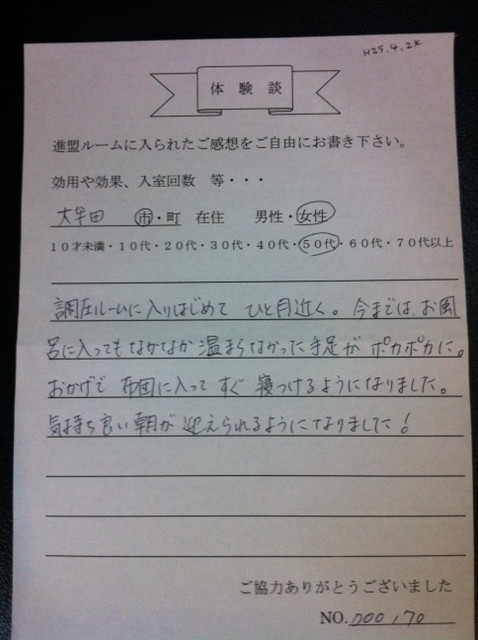 H25.4.2K
体験談
進盟ルームに入られたご感想をご自由にお書き下さい。
効用や効果、入室回数 等・・・
大牟田 市・町 在住 男性・女性
10才未満・10代・20代・30代・40代・50代・60代・70代以上
調圧ルームに入りはじめて ひと月近く。今までは、お風
呂に入ってもなかなか温まらなかった手足が ポカポカに。
おかげで 布団に入って すぐ 寝つけるようになりました。
気持ち良い朝が 迎えられるようになりました！
ご協力ありがとうございました
NO. 000170